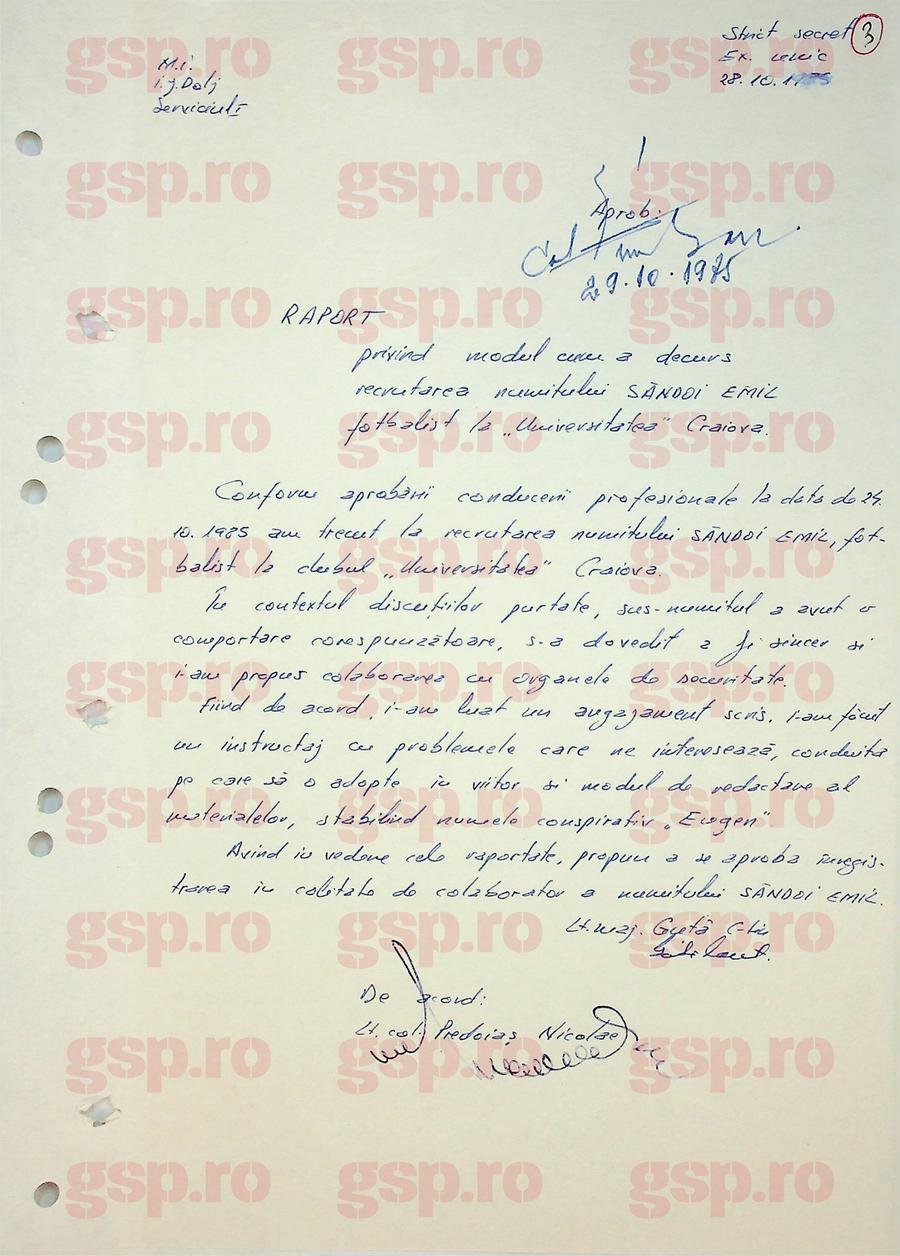 Strict secret
Ex. unic
28.10.1985
3
M.i.
i.j. Dolj
Serviciul I
Aprob:
29.10.1985
RAPORT
privind modul cum a decurs
recrutarea numitului SĂNDOI EMIL
fotbalist la „Universitatea" Craiova.
Conform aprobării conducerii profesionale la data de 24.
10.1985 am trecut la recrutarea numitului SĂNDOI EMIL, fot-
balist la clubul „Universitatea" Craiova.
În contextul discuțiilor purtate, sus-numitul a avut o
comportare corespunzătoare, s-a dovedit a fi sincer si
i-am propus colaborarea cu organele de securitate.
Fiind de acord, i-am luat un angajament scris, i-am făcut
un instructaj cu problemele care ne interesează, conduita
pe care să o adopte in viitor si modul de redactare al
materialelor, stabilind numele conspirativ „Eugen"
Avind in vedere cele raportate, propun a se aproba înregis-
trarea in calitate de colaborator a numitului SĂNDOI EMIL.
Lt. maj. C-tin
De acord:
Lt. col. Predoiaș Nicolae
gsp.ro gsp.ro gsp.ro
gsp.ro gsp.ro gsp.ro
gsp.ro gsp.ro gsp.ro
gsp.ro gsp.ro gsp.ro
gsp.ro gsp.ro gsp.ro
gsp.ro gsp.ro gsp.ro
gsp.ro gsp.ro gsp.ro
gsp.ro gsp.ro gsp.ro
gsp.ro gsp.ro gsp.ro
gsp.ro gsp.ro gsp.ro